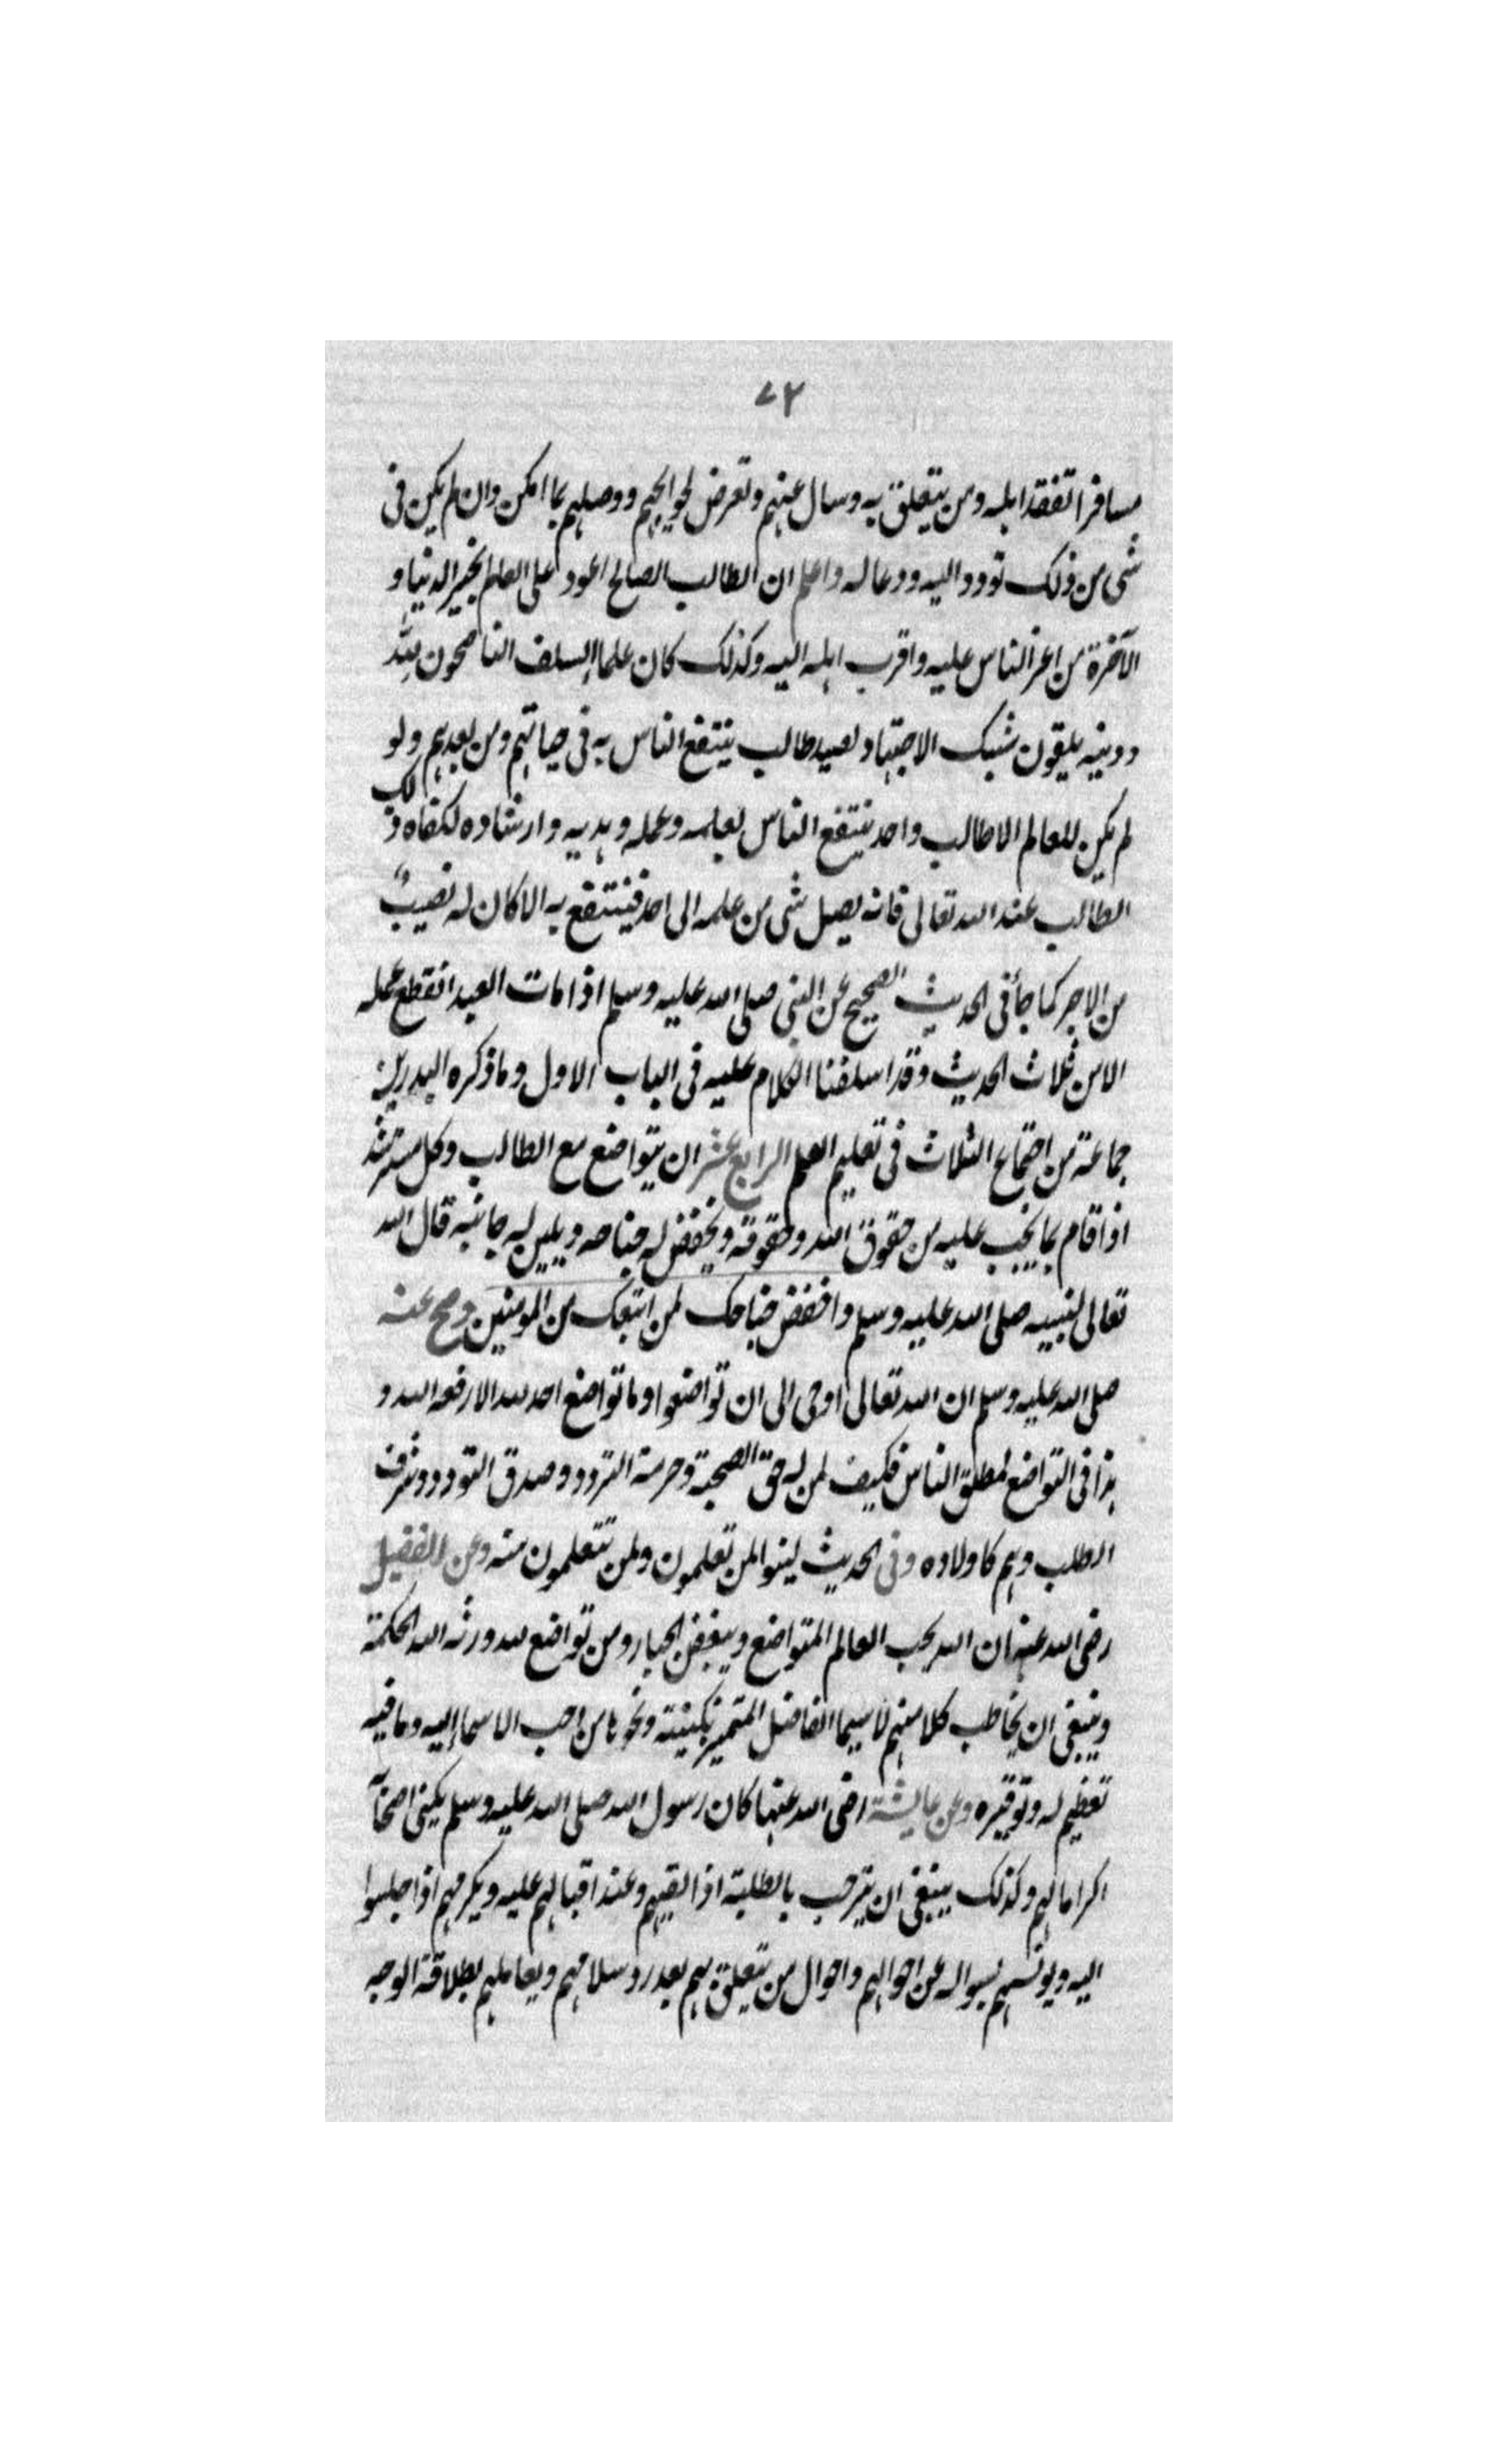 ٧٢
مسافرا تفقد اهله ومن يتعلق به وسال عنهم وتعرض لحوايجهم ووصلهم بما امكن وان لم يكن في
شي من ذلك تودد اليه ودعا له واعلم ان الطالب الصالح اعود على العالم بخير الدنيا و
الآخرة من اعز الناس عليه واقرب اهله اليه وكذلك كان علماء السلف الناصحون لله
ودينه يلقون شبك الاجتهاد لصيد طالب ينتفع الناس به في حياتهم ومن بعدهم ولو
لم يكن للعالم الا طالب واحد ينتفع الناس بعلمه وعمله وهديه وارشاده لكفاه ذلك
الطالب عند الله تعالى فانه يصل شي من علمه الى احد فينتفع به الا كان له نصيبٌ
من الاجر كما جأ في الحديث الصحيح عن النبي صلى الله عليه وسلم اذا مات العبد انقطع عمله
الا من ثلاث الحديث وقد اسلفنا الكلام عليه في الباب الاول وما ذكره البدر بن
جماعة من اجتماع الثلاث في تعليم العلم الرابع عشر ان يتواضع مع الطالب وكل مسترشد
اذا قام بما يجب عليه من حقوق الله وحقوقه ويخفض له جناحه ويلين له جانبه قال الله
تعالى لنبيه صلى الله عليه وسلم واخفض جناحك لمن اتبعك من المومنين وصح عنه
صلى الله عليه وسلم ان الله تعالى اوحى الى ان تواضعوا وما تواضع احد لله الا رفعه الله و
هذا في التواضع لمطلق الناس فكيف لمن له حق الصحبة وحرمة التردد وصدق التودد وشرف
الطلب وهم كاولاده وفي الحديث لينوا لمن تعلمون ولمن تتعلمون منه وعن الفضيل
رضى الله عنه ان الله يحب العالم المتواضع ويبغض الجبار ومن تواضع لله ورثه الله الحكمة
وينبغي ان يخاطب كلا منهم لا سيما الفاضل المتميز بكنيته ونحوها من احب الاسماء اليه وما فيه
تعظيم له وتوقيره وعن عايشة رضى الله عنها كان رسول الله صلى الله عليه وسلم يكني اصحابه
اكراما لهم وكذلك ينبغي ان يترحب بالطلبة اذا لقيهم وعند اقبالهم عليه ويكرمهم اذا جلسوا
اليه ويونسهم بسواله عن احوالهم واحوال من يتعلق بهم بعد رد سلامهم ويعاملهم بطلاقة الوجه